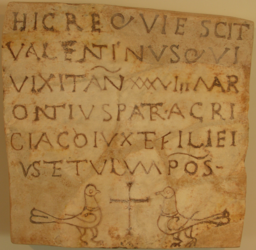 HIC REQVIESCIT
VALENTINVS QVI
VIXIT AN XXXVII MAR
ONTIVS PATR AGRI
CIA CO IVX ET FILI EI
VS ETVLVM POS